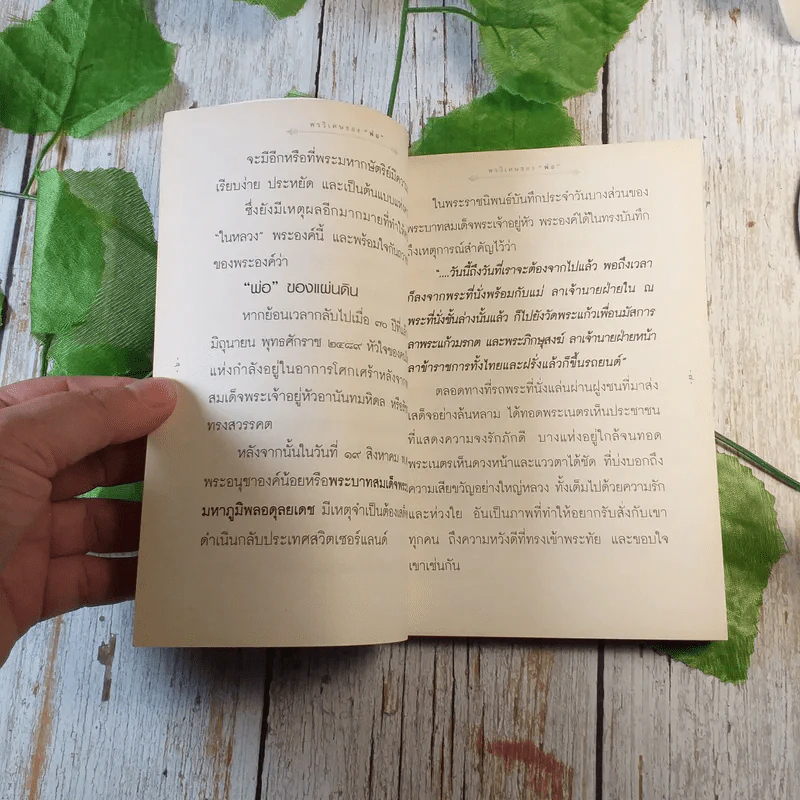 พรวิเศษของ "พ่อ"
จะมีอีกหรือที่พระมหากษัตริย์มีความ
เรียบง่าย ประหยัด และเป็นต้นแบบแห่ง
ซึ่งยังมีเหตุผลอีกมากมายที่ทำให้
"ในหลวง" พระองค์นี้ และพร้อมใจกัน
ของพระองค์ว่า
"พ่อ" ของแผ่นดิน
หากย้อนเวลากลับไปเมื่อ ๓๐ ปีที่
มิถุนายน พุทธศักราช ๒๔๘๙ หัวใจของ
แห่งกำลังอยู่ในอาการโศกเศร้าหลังจาก
สมเด็จพระเจ้าอยู่หัวอานันทมหิดล หรือ
ทรงสวรรคต
หลังจากนั้นในวันที่ ๑๙ สิงหาคม
พระอนุชาองค์น้อยหรือพระบาทสมเด็จพระ
มหาภูมิพลอดุลยเดช มีเหตุจำเป็นต้อง
ดำเนินกลับประเทศสวิตเซอร์แลนด์
พรวิเศษของ "พ่อ"
ในพระราชนิพนธ์บันทึกประจำวันบางส่วนของ
พระบาทสมเด็จพระเจ้าอยู่หัว พระองค์ได้ในทรงบันทึก
ถึงเหตุการณ์สำคัญไว้ว่า
"....วันนี้ถึงวันที่เราจะต้องจากไปแล้ว พอถึงเวลา
ก็ลงจากพระที่นั่งพร้อมกับแม่ ลาเจ้านายฝ่ายใน ณ
พระที่นั่งชั้นล่างนั้นแล้ว ก็ไปยังวัดพระแก้วเพื่อนมัสการ
ลาพระแก้วมรกต และพระภิกษุสงฆ์ ลาเจ้านายฝ่ายหน้า
ลาข้าราชการทั้งไทยและฝรั่งแล้วก็ขึ้นรถยนต์"
ตลอดทางที่รถพระที่นั่งแล่นผ่านฝูงชนที่มาส่ง
เสด็จอย่างล้นหลาม ได้ทอดพระเนตรเห็นประชาชน
ที่แสดงความจงรักภักดี บางแห่งอยู่ใกล้จนทอด
พระเนตรเห็นดวงหน้าและแววตาได้ชัด ที่บ่งบอกถึง
ความเสียขวัญอย่างใหญ่หลวง ทั้งเต็มไปด้วยความรัก
และห่วงใย อันเป็นภาพที่ทำให้อยากรับสั่งกับเขา
ทุกคน ถึงความหวังดีที่ทรงเข้าพระทัย และขอบใจ
เขาเช่นกัน